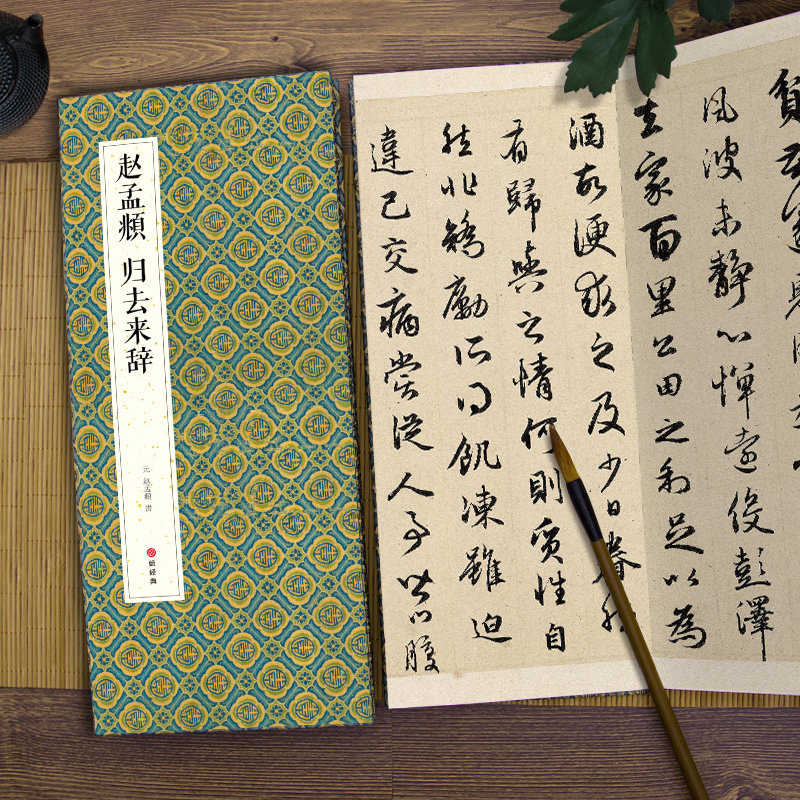 赵孟頫 归去来辞
元 赵孟頫 書
经典
貧
風波未靜心憚遠役彭澤
去家百里公田之利足以為
酒故便求之及少日眷然
有歸與之情何則質性自
然非矯勵所得飢凍雖迫
違己交病嘗從人事皆口腹